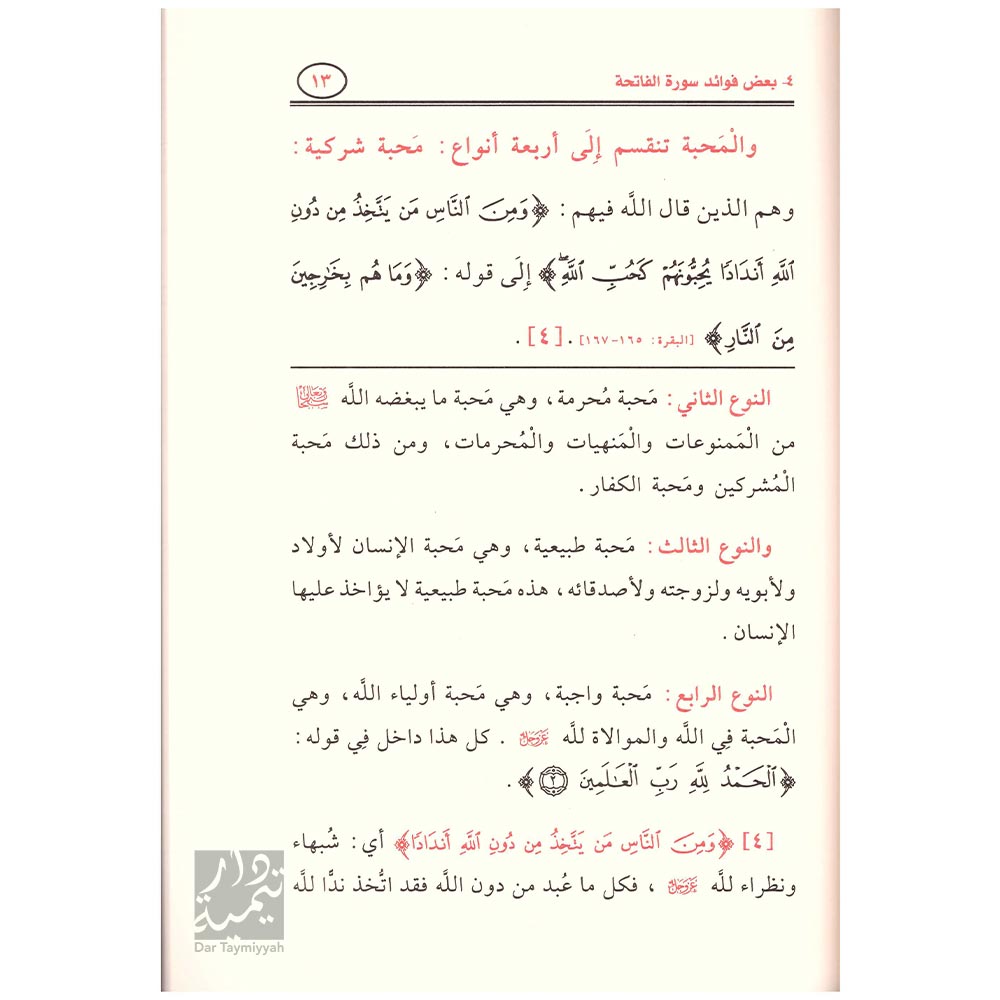 ٤- بعض فوائد سورة الفاتحة ١٣
والْمَحبة تنقسم إِلَى أربعة أنواع: مَحبة شركية:
وهم الذين قال اللَّه فيهم: ﴿وَمِنَ ٱلنَّاسِ مَن يَتَّخِذُ مِن دُونِ
ٱللَّهِ أَندَادٗا يُحِبُّونَهُمۡ كَحُبِّ ٱللَّهِۖ﴾ إِلَى قوله: ﴿وَمَا هُم بِخَٰرِجِينَ
مِنَ ٱلنَّارِ﴾ [البقرة: ١٦٥-١٦٧]. [٤].
النوع الثاني: مَحبة مُحرمة، وهي مَحبة ما يبغضه اللَّه سبحانه وتعالى
من الْمَمنوعات والْمَنهيات والْمُحرمات، ومن ذلك مَحبة
الْمُشركين ومَحبة الكفار.
والنوع الثالث: مَحبة طبيعية، وهي مَحبة الإنسان لأولاد
ولأبويه ولزوجته ولأصدقائه، هذه مَحبة طبيعية لا يؤاخذ عليها
الإنسان.
النوع الرابع: مَحبة واجبة، وهي مَحبة أولياء اللَّه، وهي
الْمَحبة فِي اللَّه والموالاة للَّه عز وجل. كل هذا داخل فِي قوله:
﴿ٱلۡحَمۡدُ لِلَّهِ رَبِّ ٱلۡعَٰلَمِينَ ٢﴾.
[٤] ﴿وَمِنَ ٱلنَّاسِ مَن يَتَّخِذُ مِن دُونِ ٱللَّهِ أَندَادٗا﴾ أي: شُبهاء
ونظراء للَّه عز وجل، فكل ما عُبد من دون اللَّه فقد اتُّخذ ندًّا للَّه
دار تيمية
Dar Taymiyyah